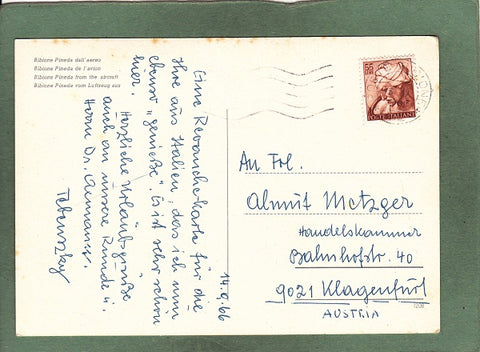 Bibione Pineda dall'aereo
Bibione Pineda de l'avion
Bibione Pineda from the aircraft
Bibione Pineda vom Luftzeug aus
14.9.66
Eine Revanchekarte für die
Ihre aus Italien, das ich nun
ebenso „genieße". Es ist sehr schön
hier.
Herzliche Urlaubsgrüße
auch an unsere Runde u.
Herrn Dr.
POSTE ITALIANE
An Frl.
Almut Metzger
Handelskammer
Bahnhofstr. 40
9021 Klagenfurt
AUSTRIA